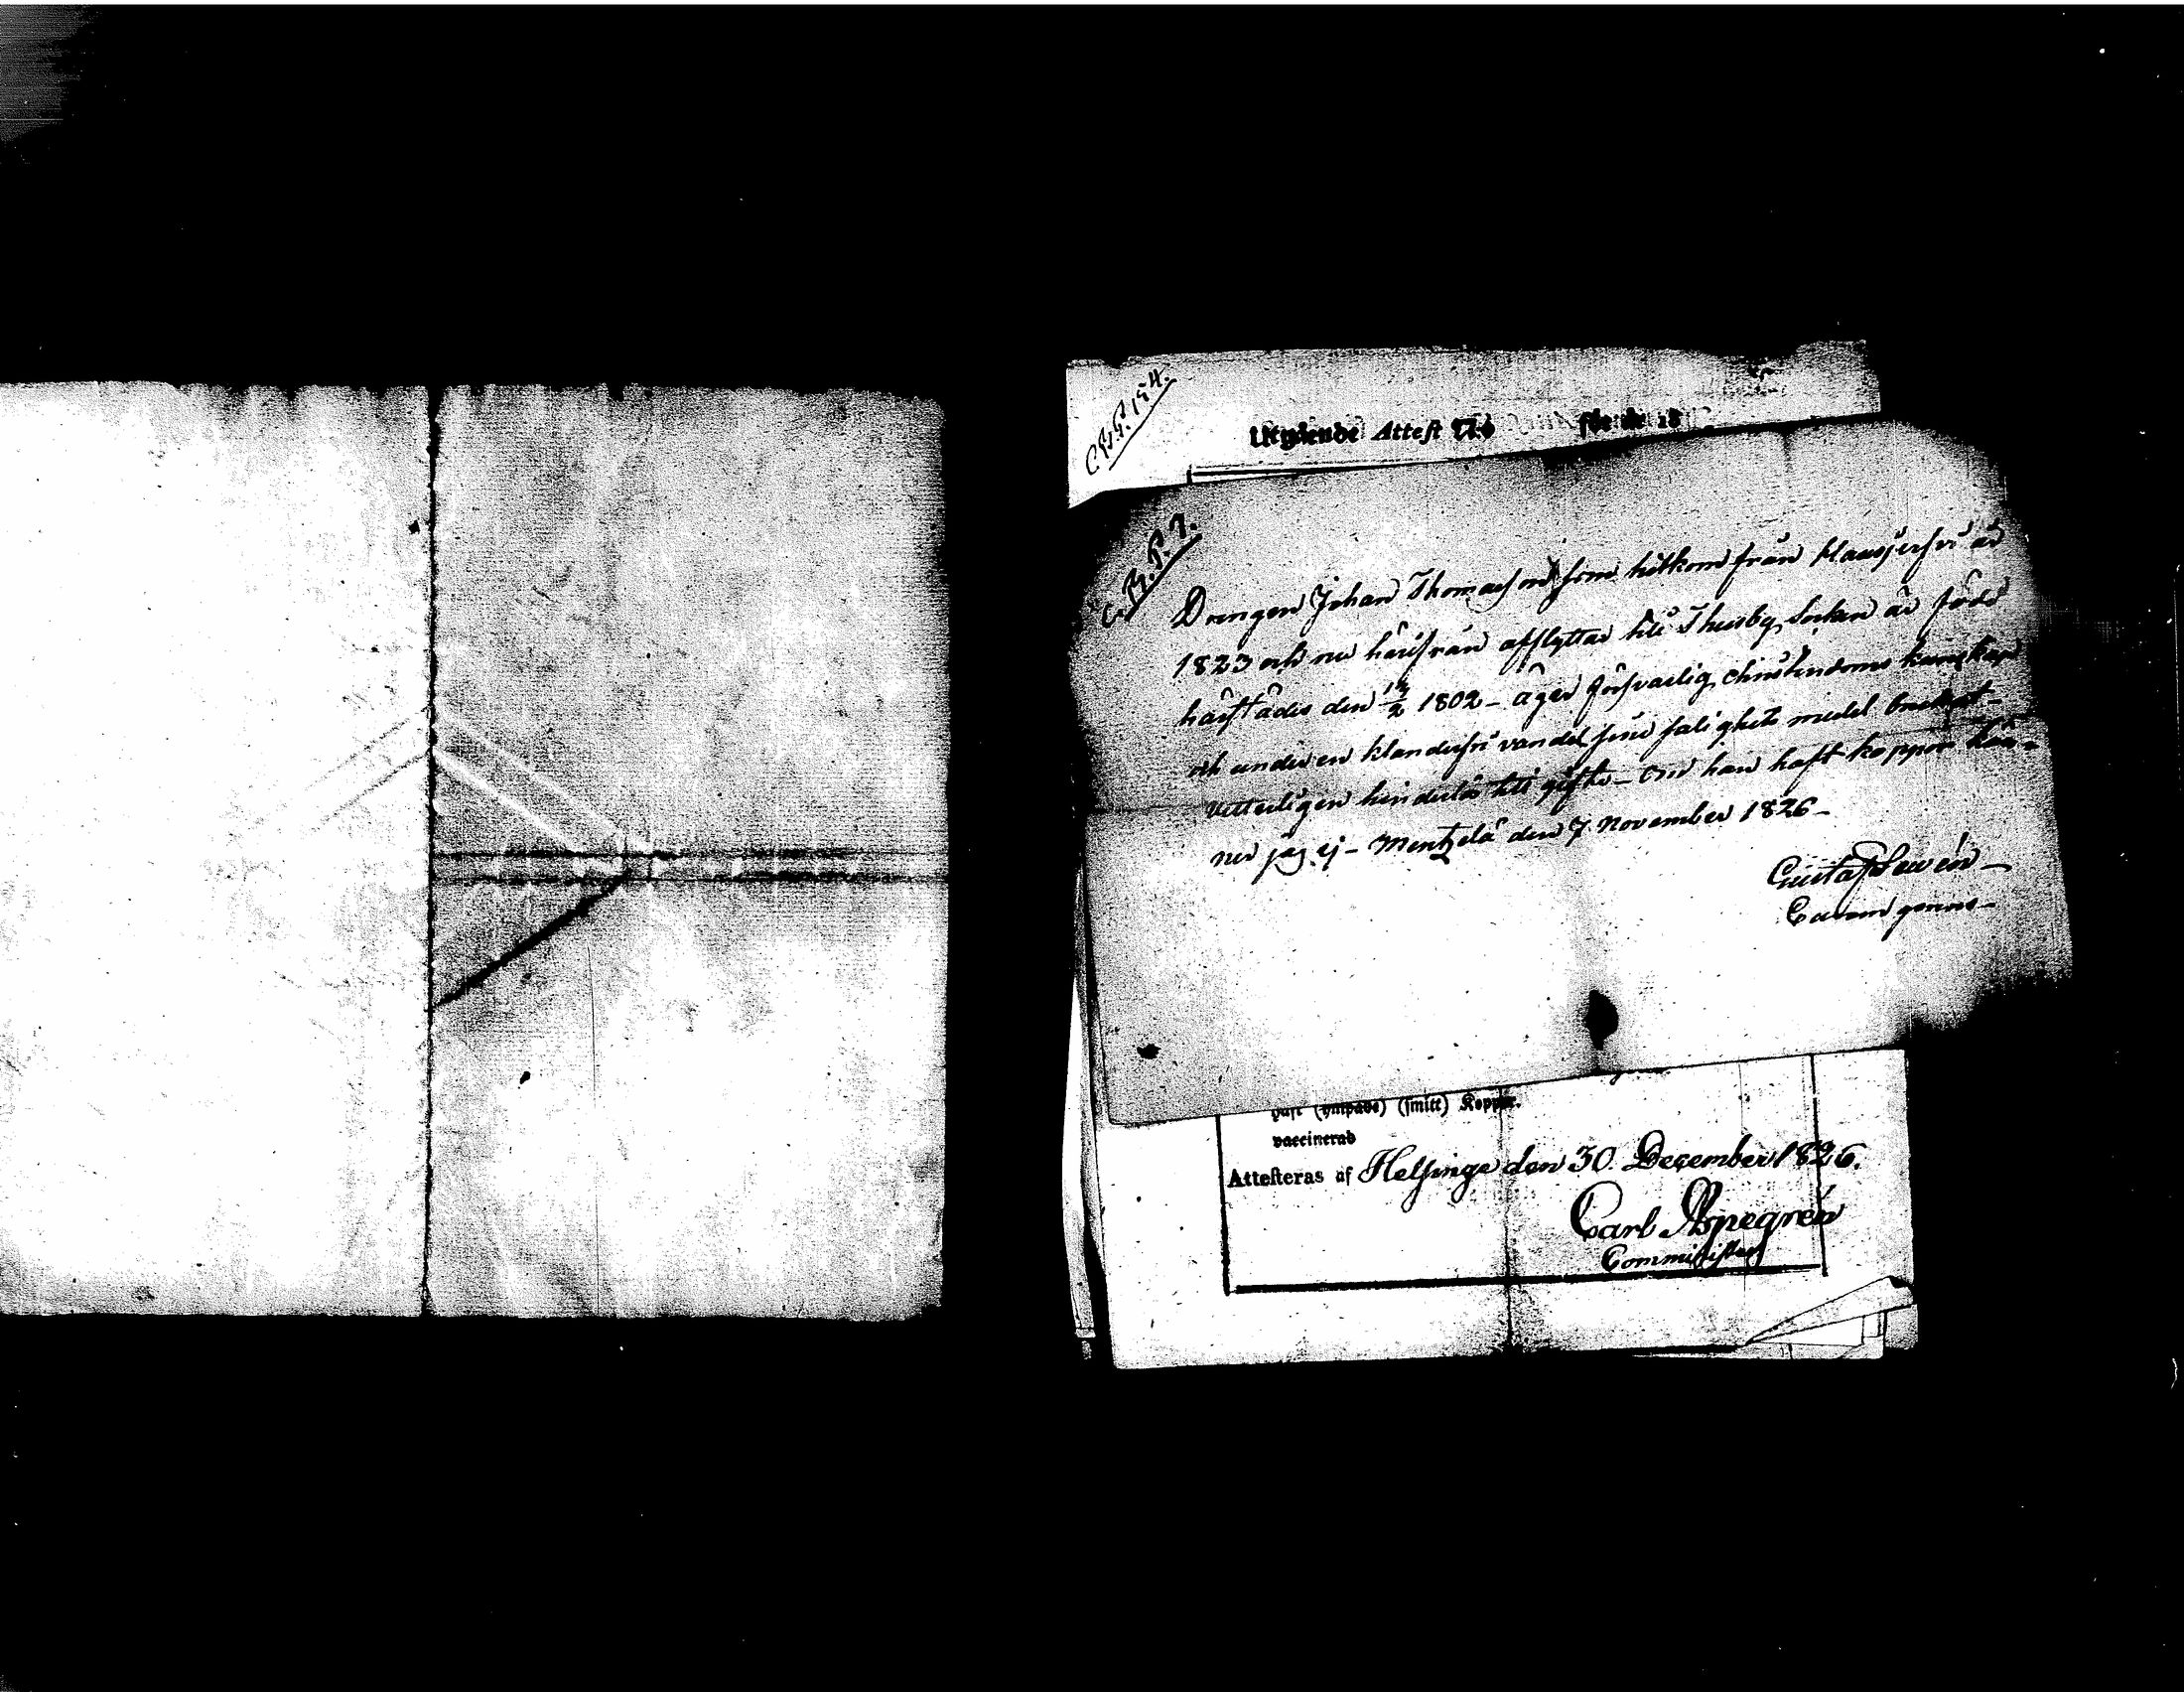 C. B. P. 154.
Utgående Attest N:o för år 18
C. B. P. 7.
Drengen Johan Thomasson som hitkom från Klausjerfvi år
1823 och nu härifrån afflyttar till Thusby Sockn är född
härstädes den 1802 – äger försvarlig christendoms kunskap
och under en klanderfri vandel sine salighets medel brukat –
Vitterligen hinderlös till gifte – Om han haft koppor kän-
ner jag ej – Mentzelä den 7 November 1826 –
Gustaf
haft (ympade) (smitt) Koppor.
vaccinerad
Attesteras af Helsinge den 30. December 1826.
Carl Alopegrén
Comminister